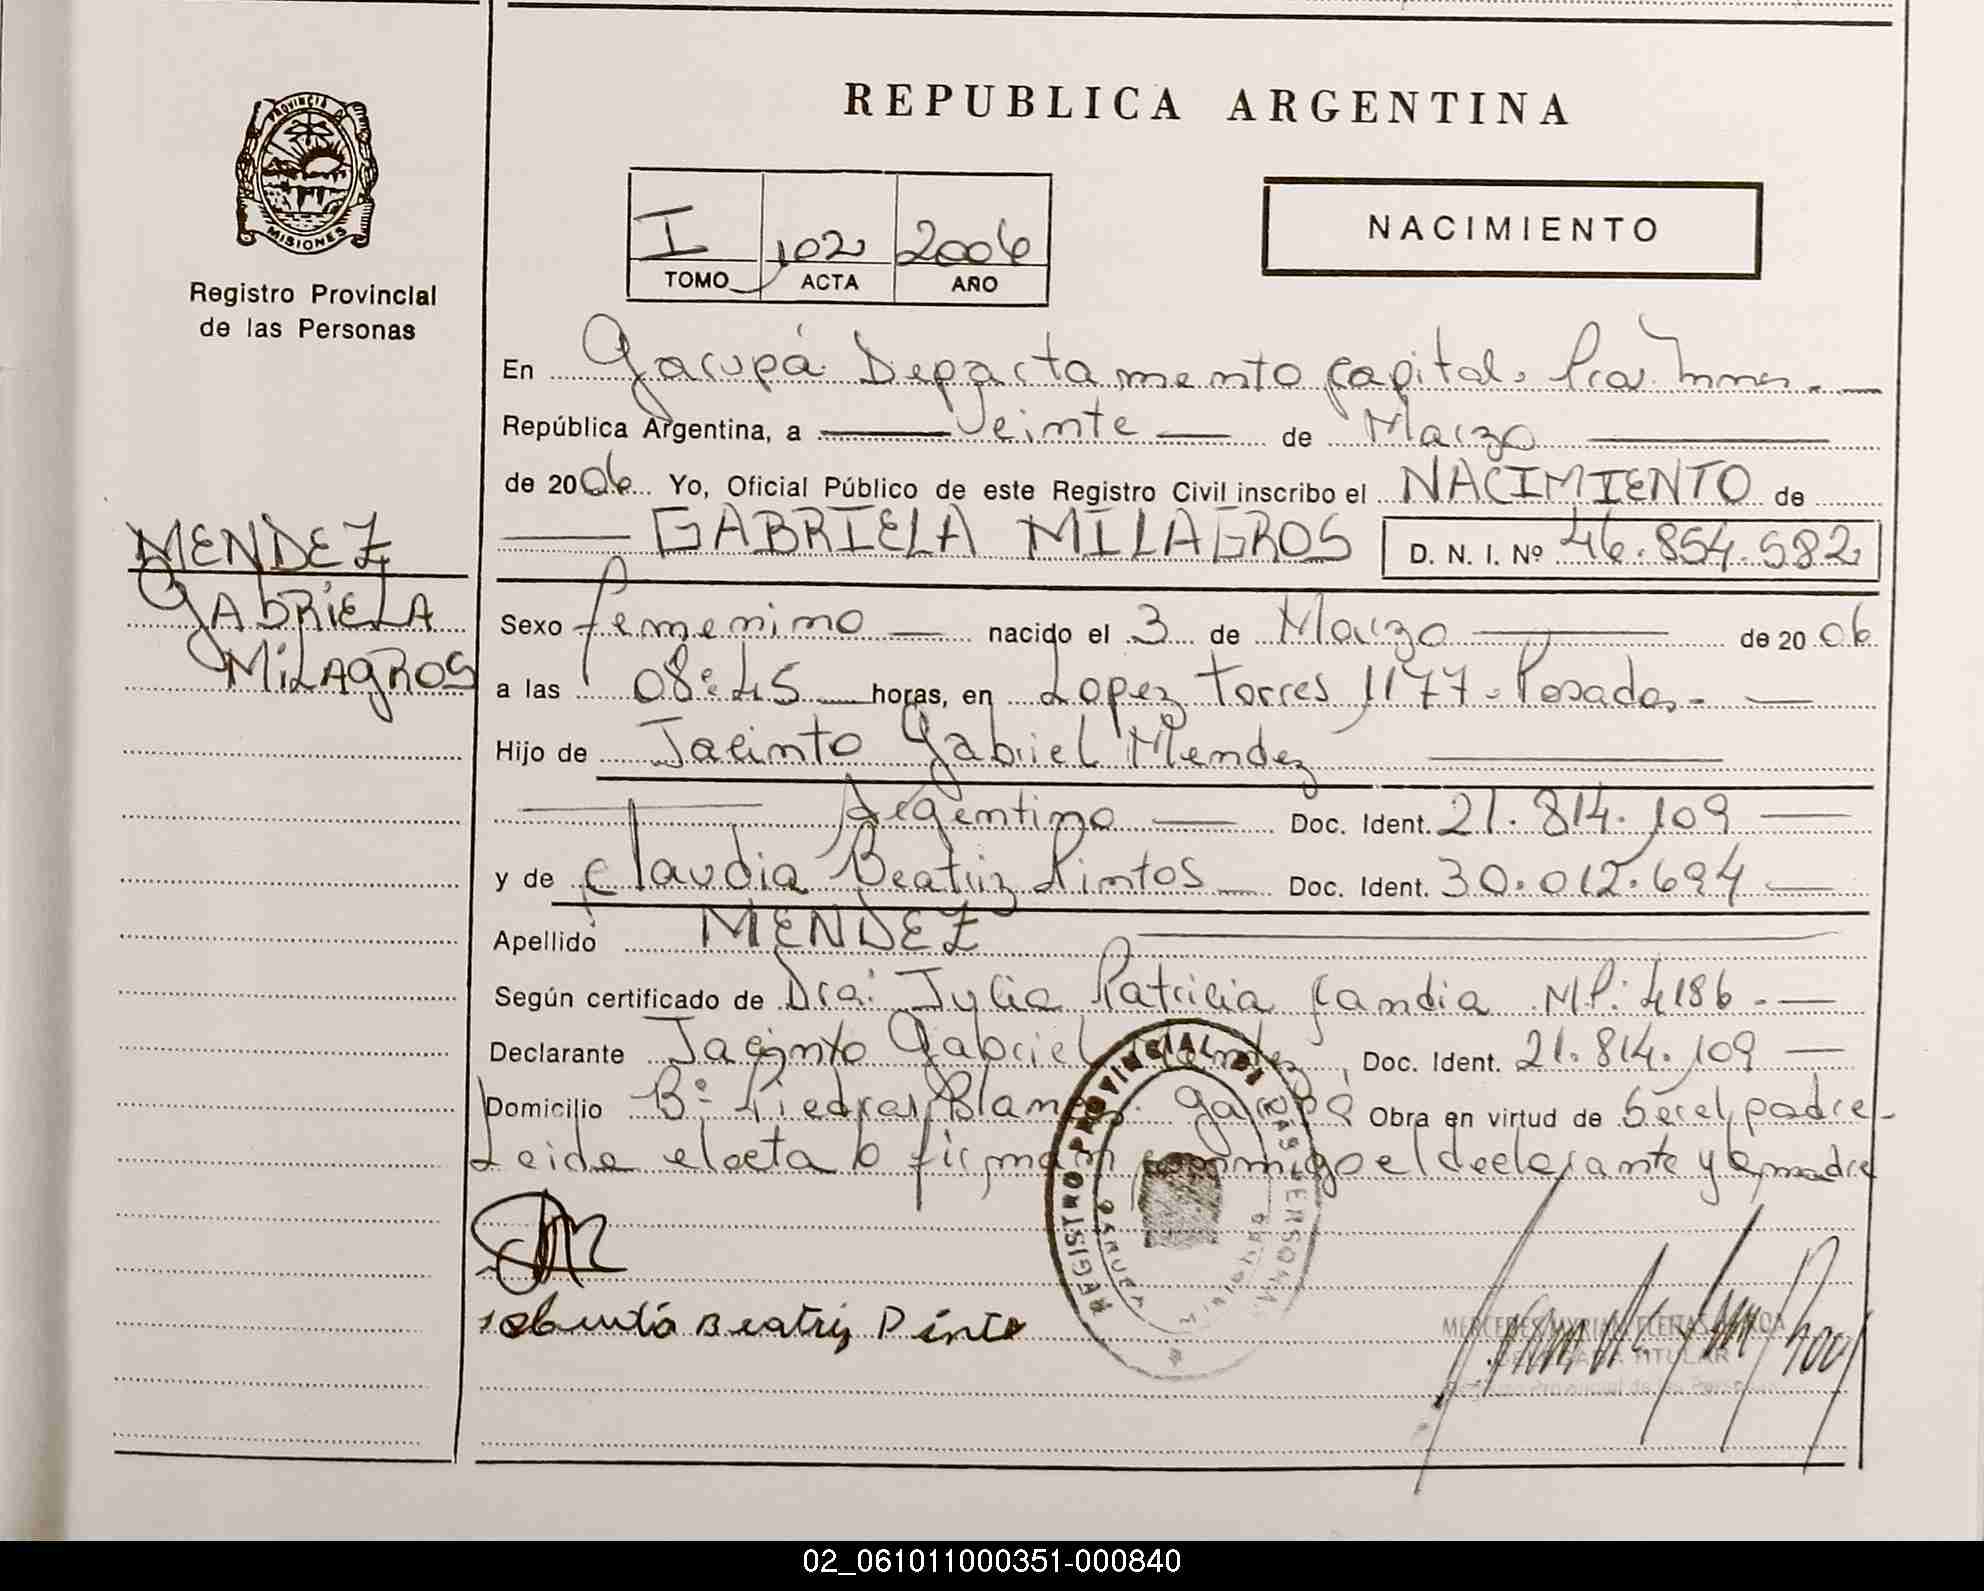 REPUBLICA ARGENTINA
PROVINCIA
MISIONES
Registro Provincial
de las Personas
I 102 2006
TOMO ACTA AÑO
NACIMIENTO
En Garupá Departamento Capital. Prov. Mnes.
República Argentina, a Veinte de Marzo
de 2006 Yo, Oficial Público de este Registro Civil inscribo el NACIMIENTO de
GABRIELA MILAGROS D. N. I. Nº 46.854.582
MENDEZ
GAbRiELA
MiLAgROS
Sexo femenino nacido el 3 de Marzo de 2006
a las 08:45 horas, en Lopez Torres 1177 - Posadas -
Hijo de Jacinto Gabriel Mendez
Argentino Doc. Ident. 21.814.109
y de Claudia Beatriz Pintos Doc. Ident. 30.012.694
Apellido MENDEZ
Según certificado de Dra: Julia Patricia Candia M.P: 4186.-
Declarante Jacinto Gabriel Mendez, Doc. Ident. 21.814.109
Domicilio Bº Piedras Blancas. Garupá Obra en virtud de Ser el padre-
Leida el acta la firman conmigo el declarante y la madre
REGISTRO PROVINCIAL DE LAS PERSONAS
Beatriz Pinto
MERCEDES MYRIAM FLEITAS
DELEGADA TITULAR
02_061011000351-000840